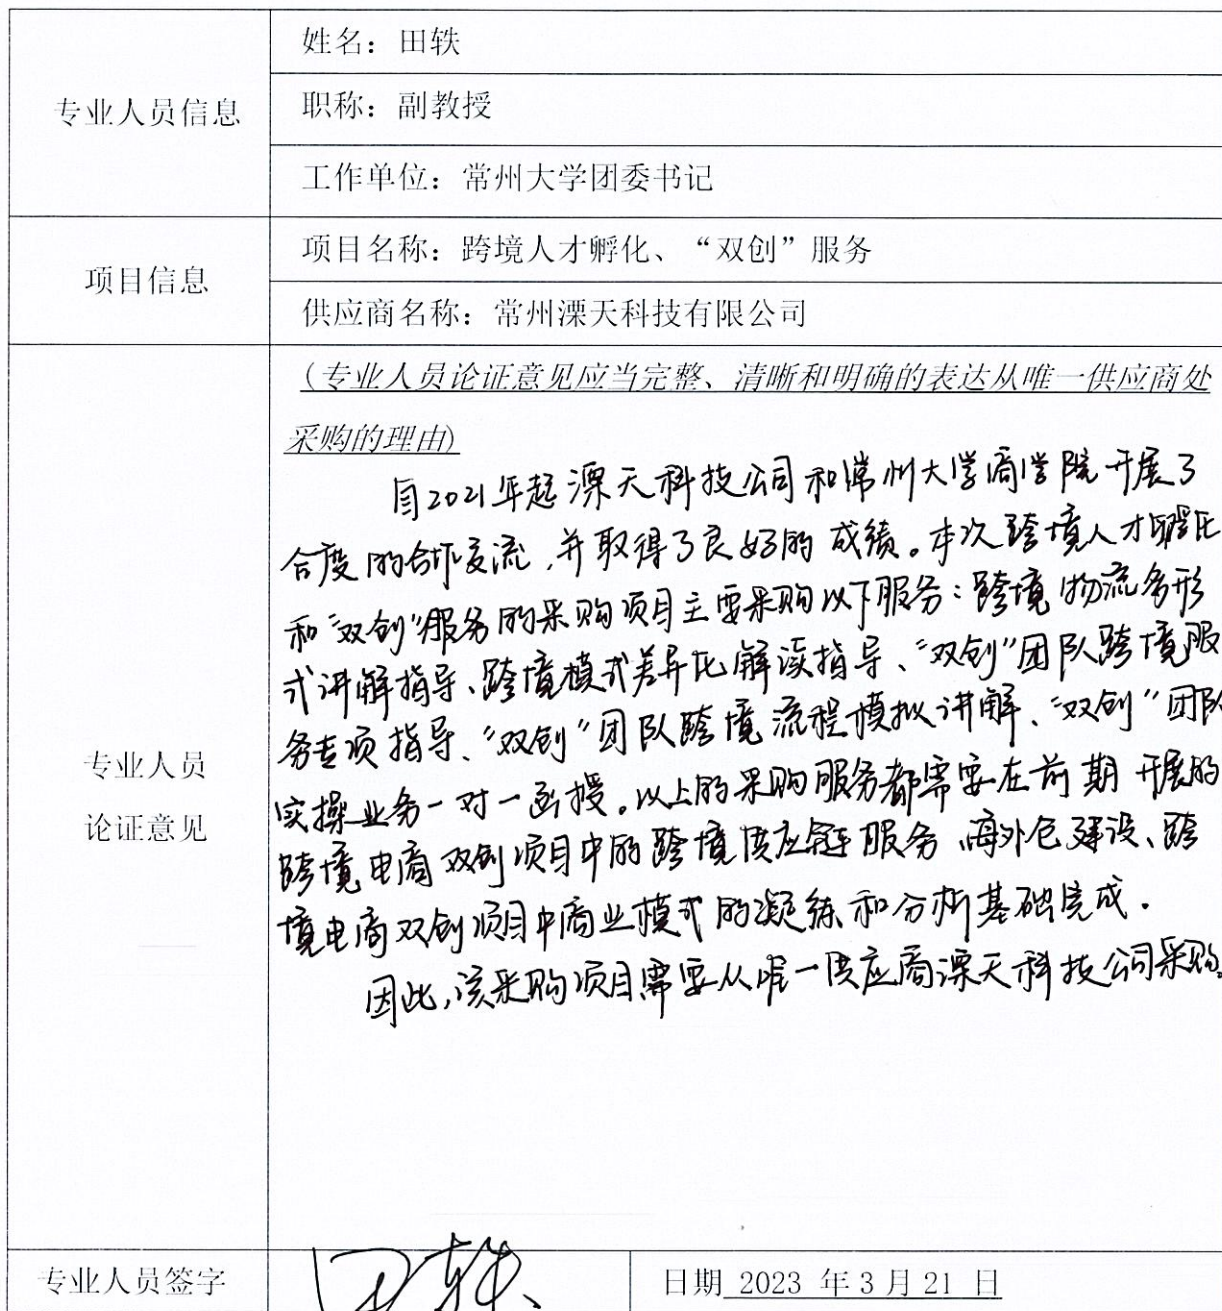 专业人员信息
姓名：田轶
职称：副教授
工作单位：常州大学团委书记
项目信息
项目名称：跨境人才孵化、“双创”服务
供应商名称：常州溧天科技有限公司
专业人员
论证意见
(专业人员论证意见应当完整、清晰和明确的表达从唯一供应商处
采购的理由)
自2021年起溧天科技公司和常州大学商学院开展了
合度的合作交流,并取得了良好的成绩。本次跨境人才孵化
和“双创”服务的采购项目主要采购以下服务：跨境物流多形
式讲解指导、跨境模式差异化解读指导、“双创”团队跨境服
务专项指导、“双创”团队跨境流程模拟讲解、“双创”团队
实操业务一对一函授。以上的采购服务都需要在前期开展的
跨境电商双创项目中的跨境供应链服务、海外仓建设、跨
境电商双创项目中商业模式的凝练和分析基础完成.
因此,该采购项目需要从唯一供应商溧天科技公司采购。
专业人员签字
田轶
日期 2023 年3月21 日